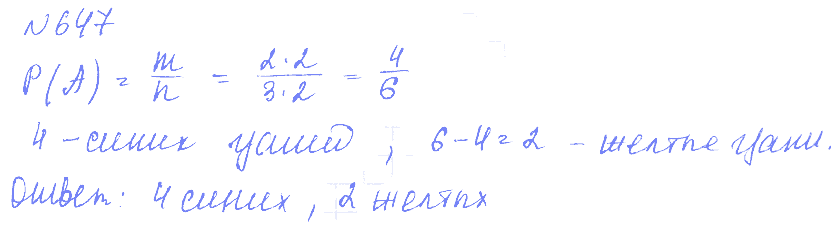 №647
P(A) = m/n = 2·2/3·2 = 4/6
4 – синих чашей, 6-4=2 – желтые чаши.
Ответ: 4 синих, 2 желтых